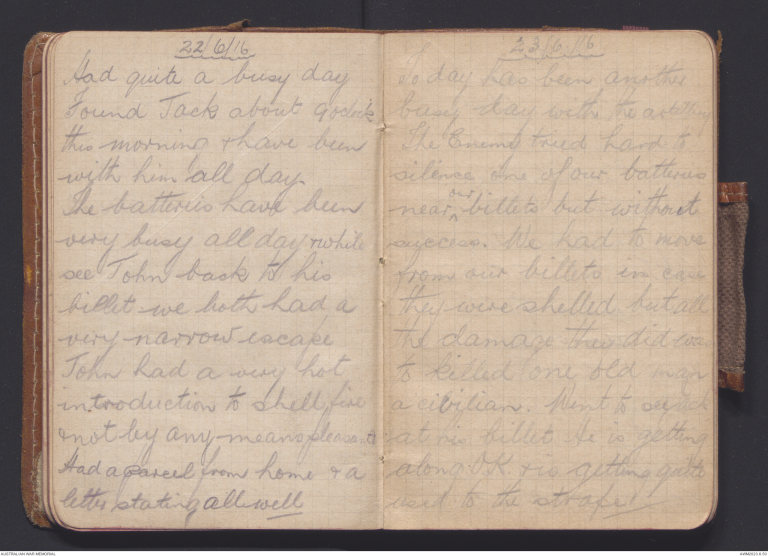 22/6/16
Had quite a busy day
Found Jack about 9 oclock
this morning & have been
with him all day.
The batteries have been
very busy all day & while
see John back to his
billet we both had a
very narrow escape
John had a very hot
introduction to shell fire
& not by any means pleasant
Had a parcel from home & a
letter stating all well
23/6/16
Today has been another
busy day with the artillery
The Enemy tried hard to
silence one of our batteries
near our billets but without
success. We had to move
from our billets in case
they were shelled but all
the damage they did was
to killed one old man
a civilian. Went to see Jack
at his billet He is getting
along OK & is getting quite
used to the strafe!
AUSTRALIAN WAR MEMORIAL